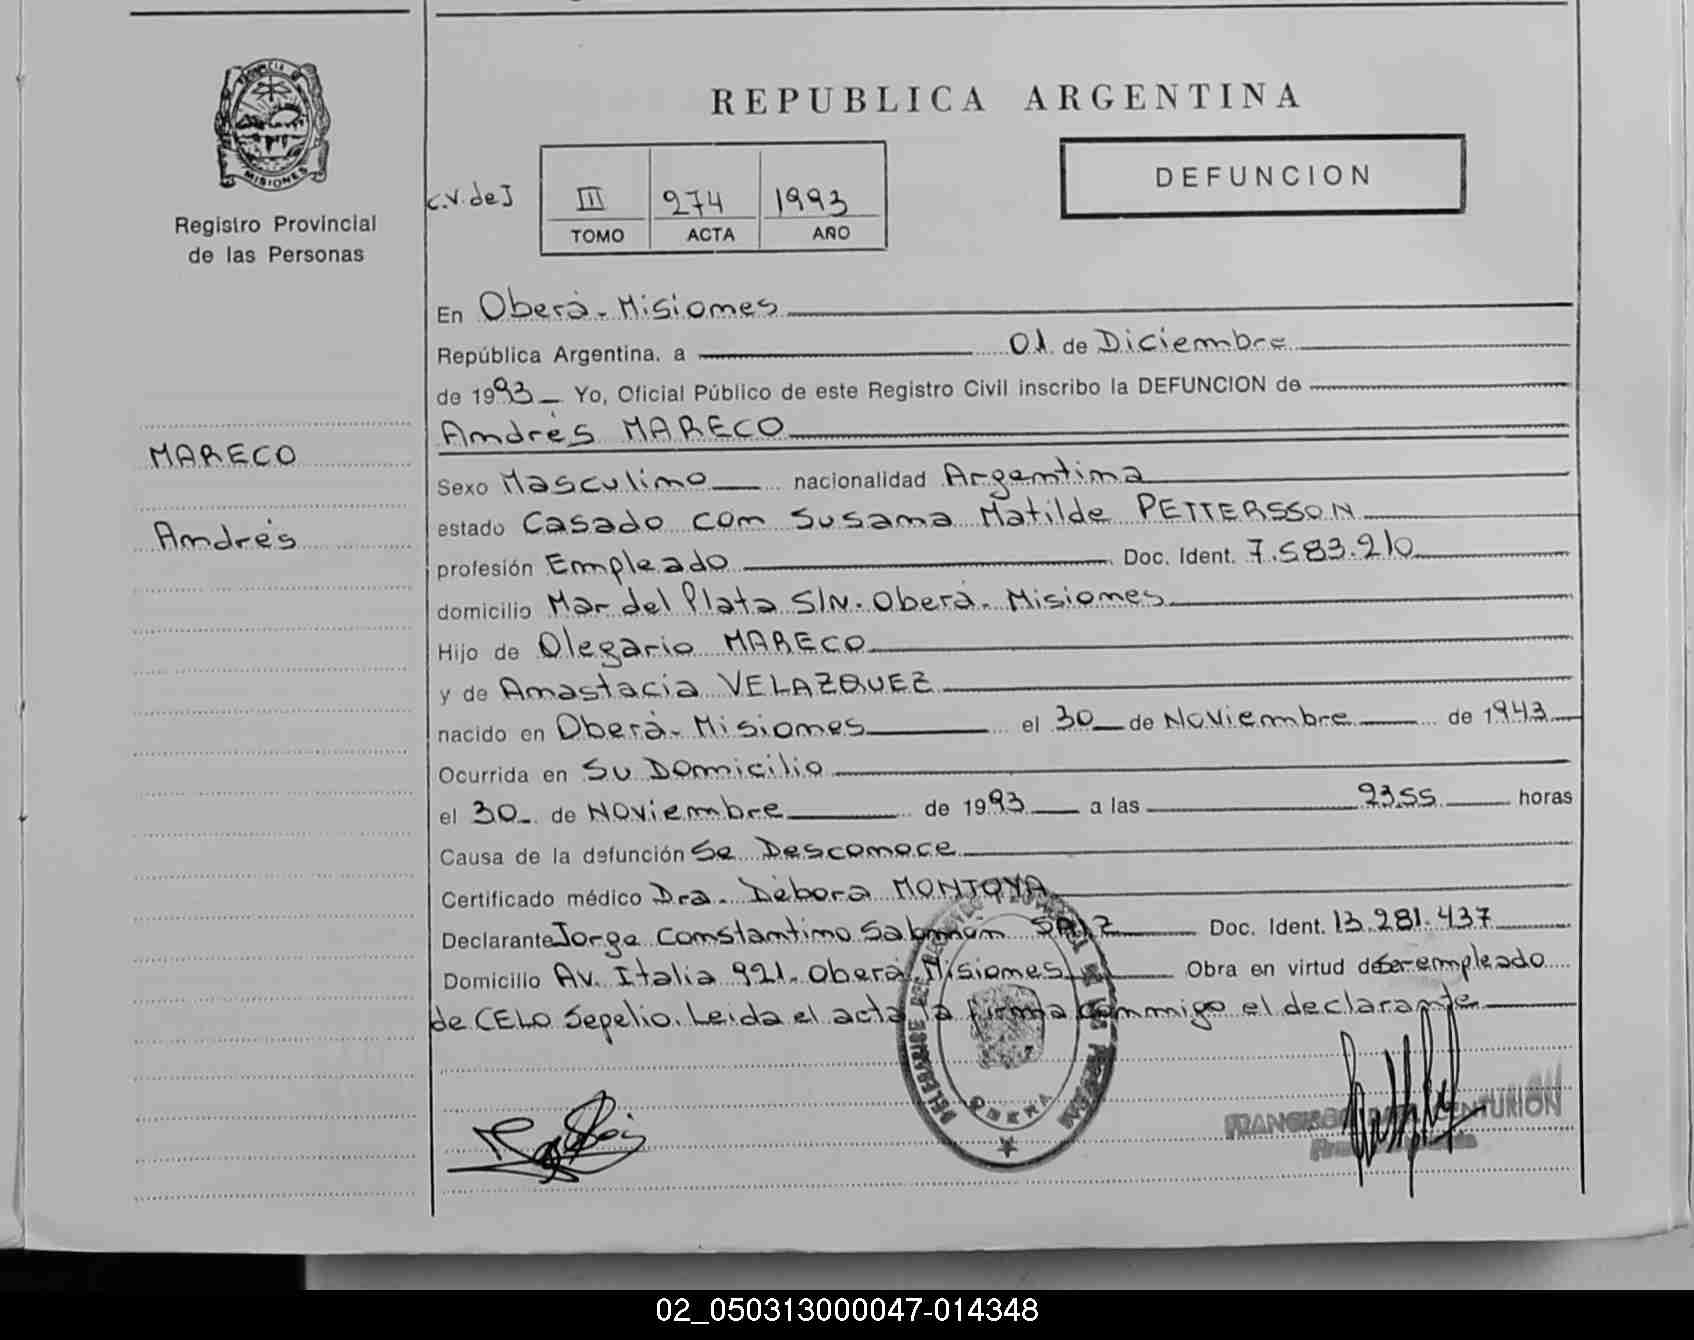 PROVINCIA DE
MISIONES
Registro Provincial
de las Personas
MARECO
Andrés
REPUBLICA ARGENTINA
C.V. de J
III 274 1993
TOMO ACTA AÑO
DEFUNCION
En Oberá - Misiones
República Argentina, a 01 de Diciembre
de 1993 Yo, Oficial Público de este Registro Civil inscribo la DEFUNCION de
Andrés MARECO
Sexo Masculino nacionalidad Argentina
estado Casado con Susana Matilde PETTERSSON
profesión Empleado Doc. Ident. 7.583.210
domicilio Mar del Plata S/N. Oberá - Misiones
Hijo de Olegario MARECO
y de Anastacia VELAZQUEZ
nacido en Oberá - Misiones el 30 de Noviembre de 1943
Ocurrida en Su Domicilio
el 30 de Noviembre de 1993 a las 23,55 horas
Causa de la defunción Se Desconoce
Certificado médico Dra. Débora MONTOYA
Declarante Jorge Constantino Salomón Doc. Ident. 13.281.437
Domicilio Av. Italia 921. Oberá, Misiones Obra en virtud de Ser empleado
de CELO Sepelio. Leida el acta la firma conmigo el declarante
OBERA
FRANCISCO CENTURION
02_050313000047-014348